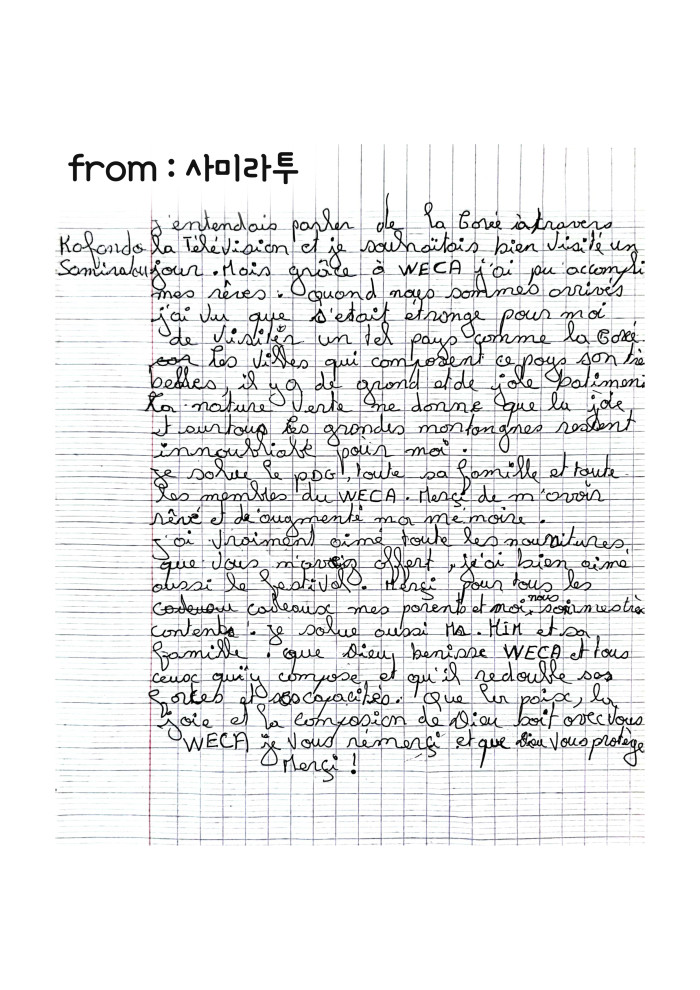 from : 사미라투
j'entendais parler de la Corée à travers
Kafando la Télévision et je souhaitais bien visité un
Samiratou jour. Mais grâce à WECA j'ai pu accompli
mes rêves. quand nous sommes arrivés
j'ai vu que s'était etrange pour moi
de visitér un tel pays comme la Corée
les villes qui composent ce pays son trè
belles, il y a de grand et de jolie batiment
La nature verte me donne que la joie
et surtous les grandes montangnes restent
innoubliable pour moi.
je salue le PDG, toute sa famille et toute
les membres du WECA. Merçi de m'avoir
rêvé et de augmenté ma mémoire.
j'ai vraiment aimé toute les nourritures
que vous m'avez offert, j'ai bien aimé
aussi le festival. Merçi pour tous les
cadeaux mes parents et moi, nous sommes très
contents. je salue aussi Mr. MIM et sa
famille. que Dieu benisse WECA et tous
ceux qui y compose et qu'il redouble ses
forces et ses capacités. Que la paix, la
joie et la compasion de Dieu soit avec vous
WECA je vous rémerçi et que Dieu vous protège
Merçi !